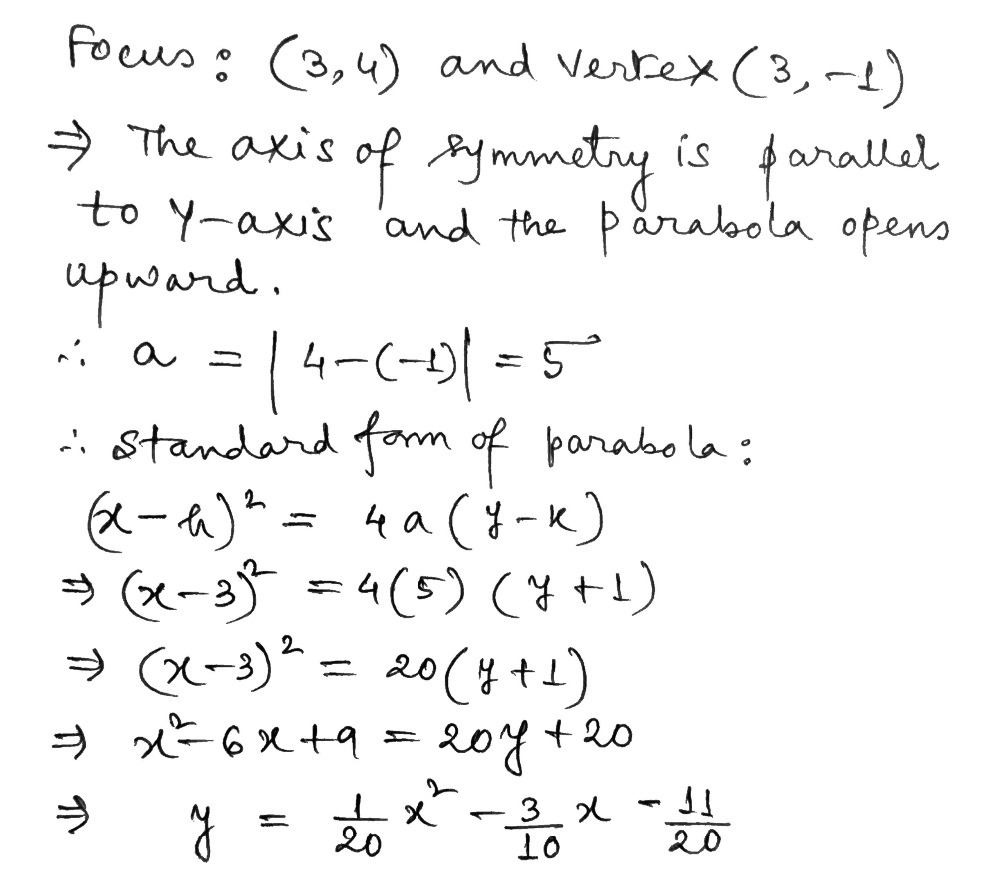 Focus: (3,4) and vertex (3,-1)
⇒ The axis of symmetry is parallel
to Y-axis and the parabola opens
upward.
∴ a = |4-(-1)| = 5
∴ standard form of parabola:
(x-h)² = 4a(y-k)
⇒ (x-3)² = 4(5) (y+1)
⇒ (x-3)² = 20(y+1)
⇒ x²-6x+9 = 20y+20
⇒ y = 1/20 x² - 3/10 x - 11/20